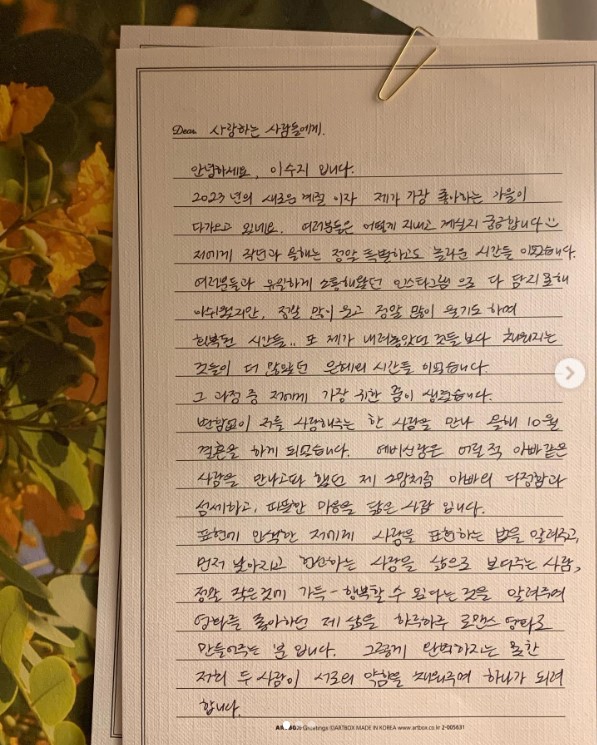 Dear 사랑하는 사람들에게.
안녕하세요, 이수지 입니다.
2023년의 새로운 계절 이자 제가 가장 좋아하는 가을이
다가오고 있네요. 여러분들은 어떻게 지내고 계실지 궁금합니다
저에게 작년과 올해는 정말 특별하고도 놀라운 시간들 이었습니다.
여러분들과 유일하게 소통해왔던 인스타그램 으로 다 담지 못해
아쉬웠지만, 정말 많이 웃고 정말 많이 울기도 하며
회복된 시간들.. 또 제가 내려놓았던 것들 보다 채워지는
것들이 더 많았던 은혜의 시간들 이었습니다.
그 과정 중 저에게 가장 귀한 꿈이 생겼습니다.
변함없이 저를 사랑해주는 한 사람을 만나 올해 10월
결혼을 하게 되었습니다. 예비신랑은 어릴 적 아빠같은
사람을 만나고파 했던 제 소망처럼 아빠의 다정함과
섬세하고, 따뜻한 마음을 닮은 사람 입니다.
표현에 인색한 저에게 사랑을 표현하는 법을 알려주고,
먼저 낮아지고 헌신하는 사랑을 삶으로 보여주는 사람,
정말 작은것에 가득 - 행복할 수 있다는 것을 알려주며
영화를 좋아하던 제 삶을 하루하루 로맨스 영화로
만들어주는 분 입니다. 그렇게 완벽하지는 못한
저희 두 사람이 서로의 약함을 채워주며 하나가 되려
합니다.
Greetings ©ARTBOX MADE IN KOREA www.artbox.co.kr 2-005631